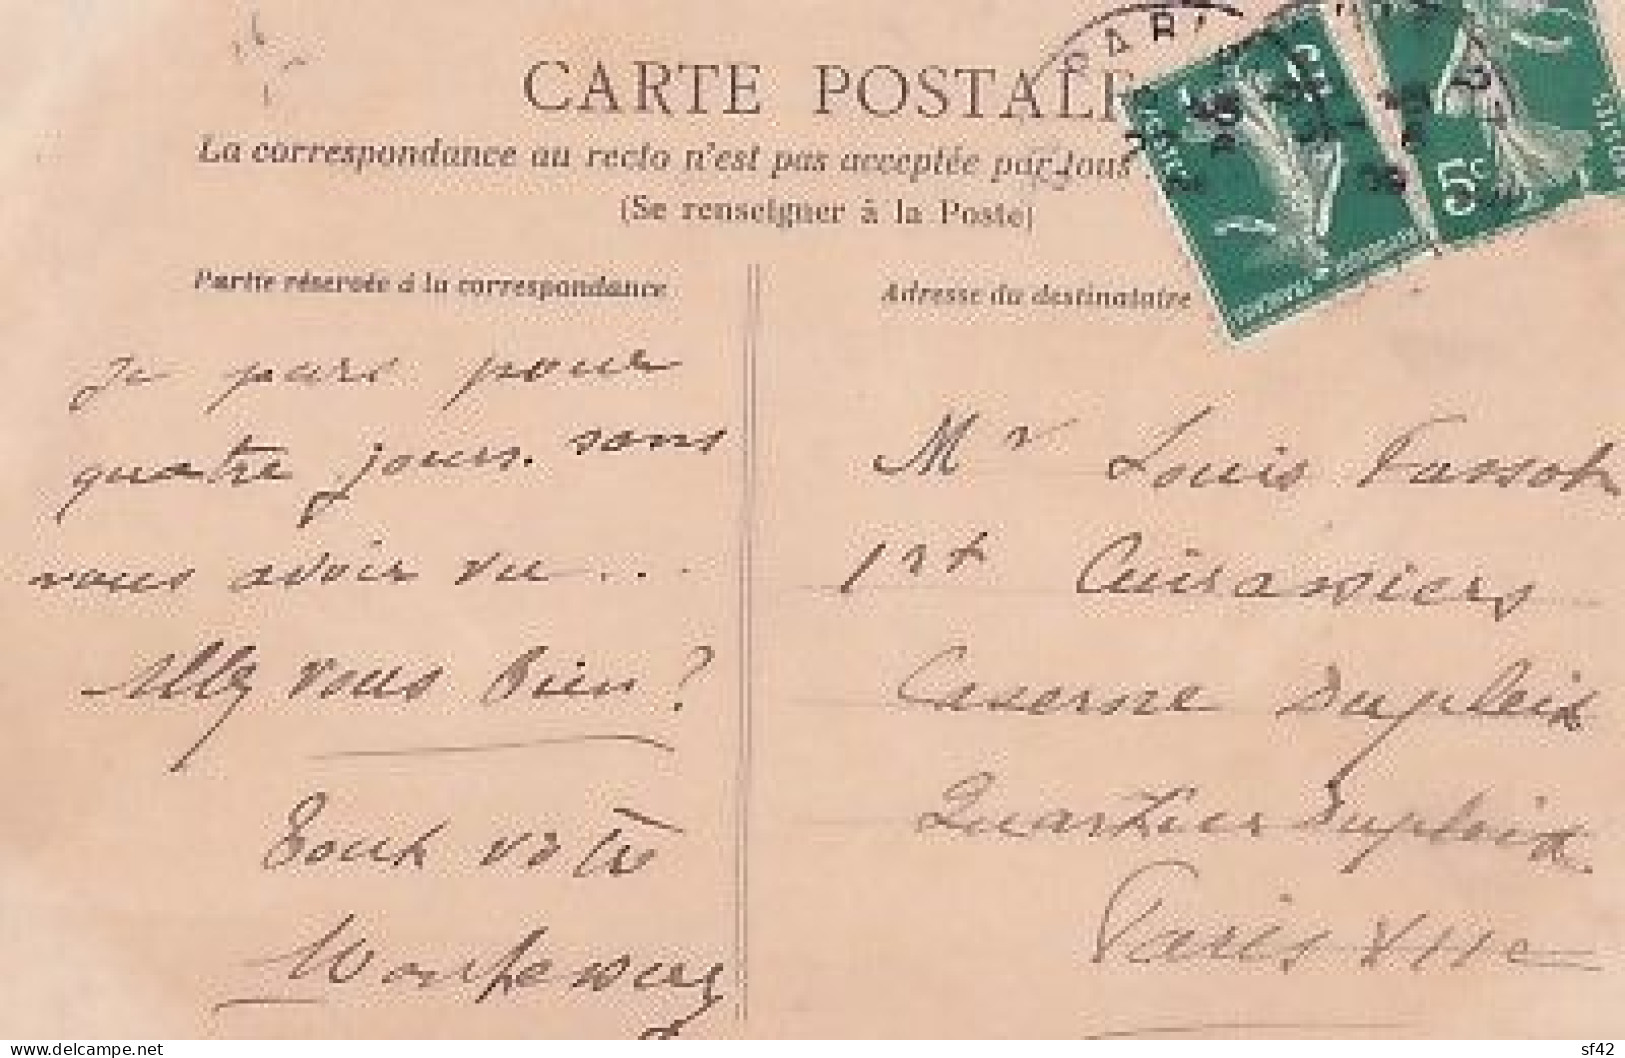 CARTE POSTALE
La correspondance au recto n'est pas acceptée par tous
(Se renseigner à la Poste)
Partie réservée à la correspondance
Adresse du destinataire
Je pars pour
quatre jours. sans
vous avoir vu...
Allez vous bien?
Tout votre
Mr Louis Fassot
1rt Cuirassiers
Caserne Dupleix
Quartier Dupleix
Paris VIIe
5c
www.delcampe.net
sf42